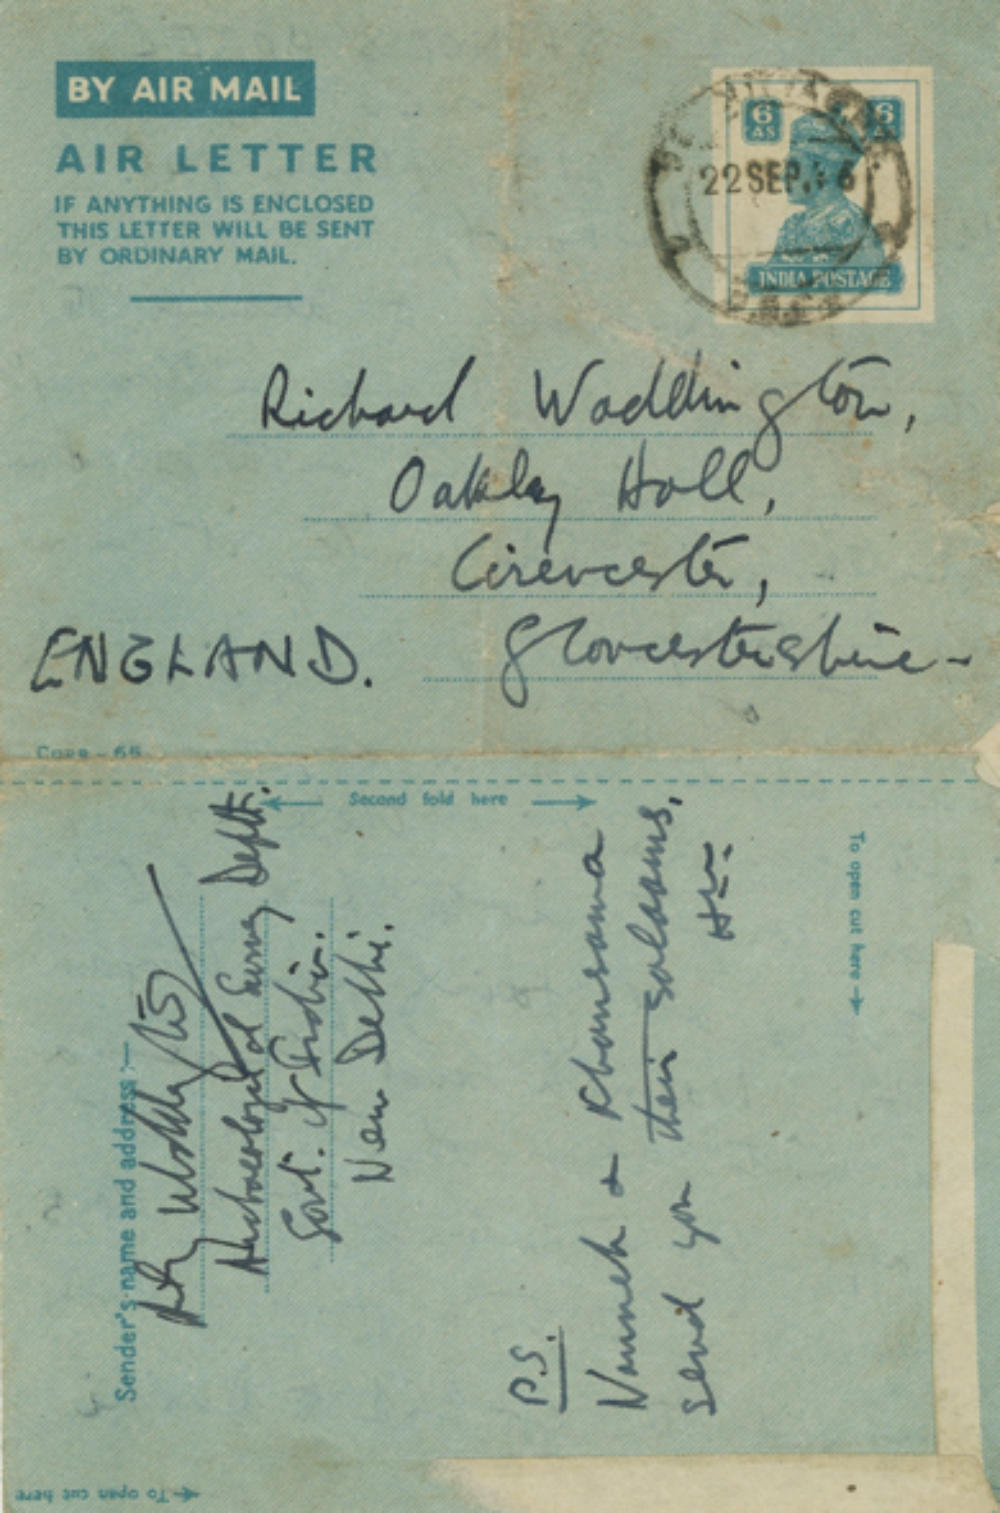 BY AIR MAIL
AIR LETTER
IF ANYTHING IS ENCLOSED
THIS LETTER WILL BE SENT
BY ORDINARY MAIL.
6 AS
6
22 SEP. 46
INDIA POSTAGE
Richard Waddington,
Oakley Hall,
Cirencester,
Gloucestershire-
ENGLAND.
Second fold here
To open cut here
Sender's name and address :—
Archaeological Survey Deptt.
Govt. of India.
New Delhi.
P.S.
Nanneh & Khansama
send you their salaams,
HW.
To open cut here